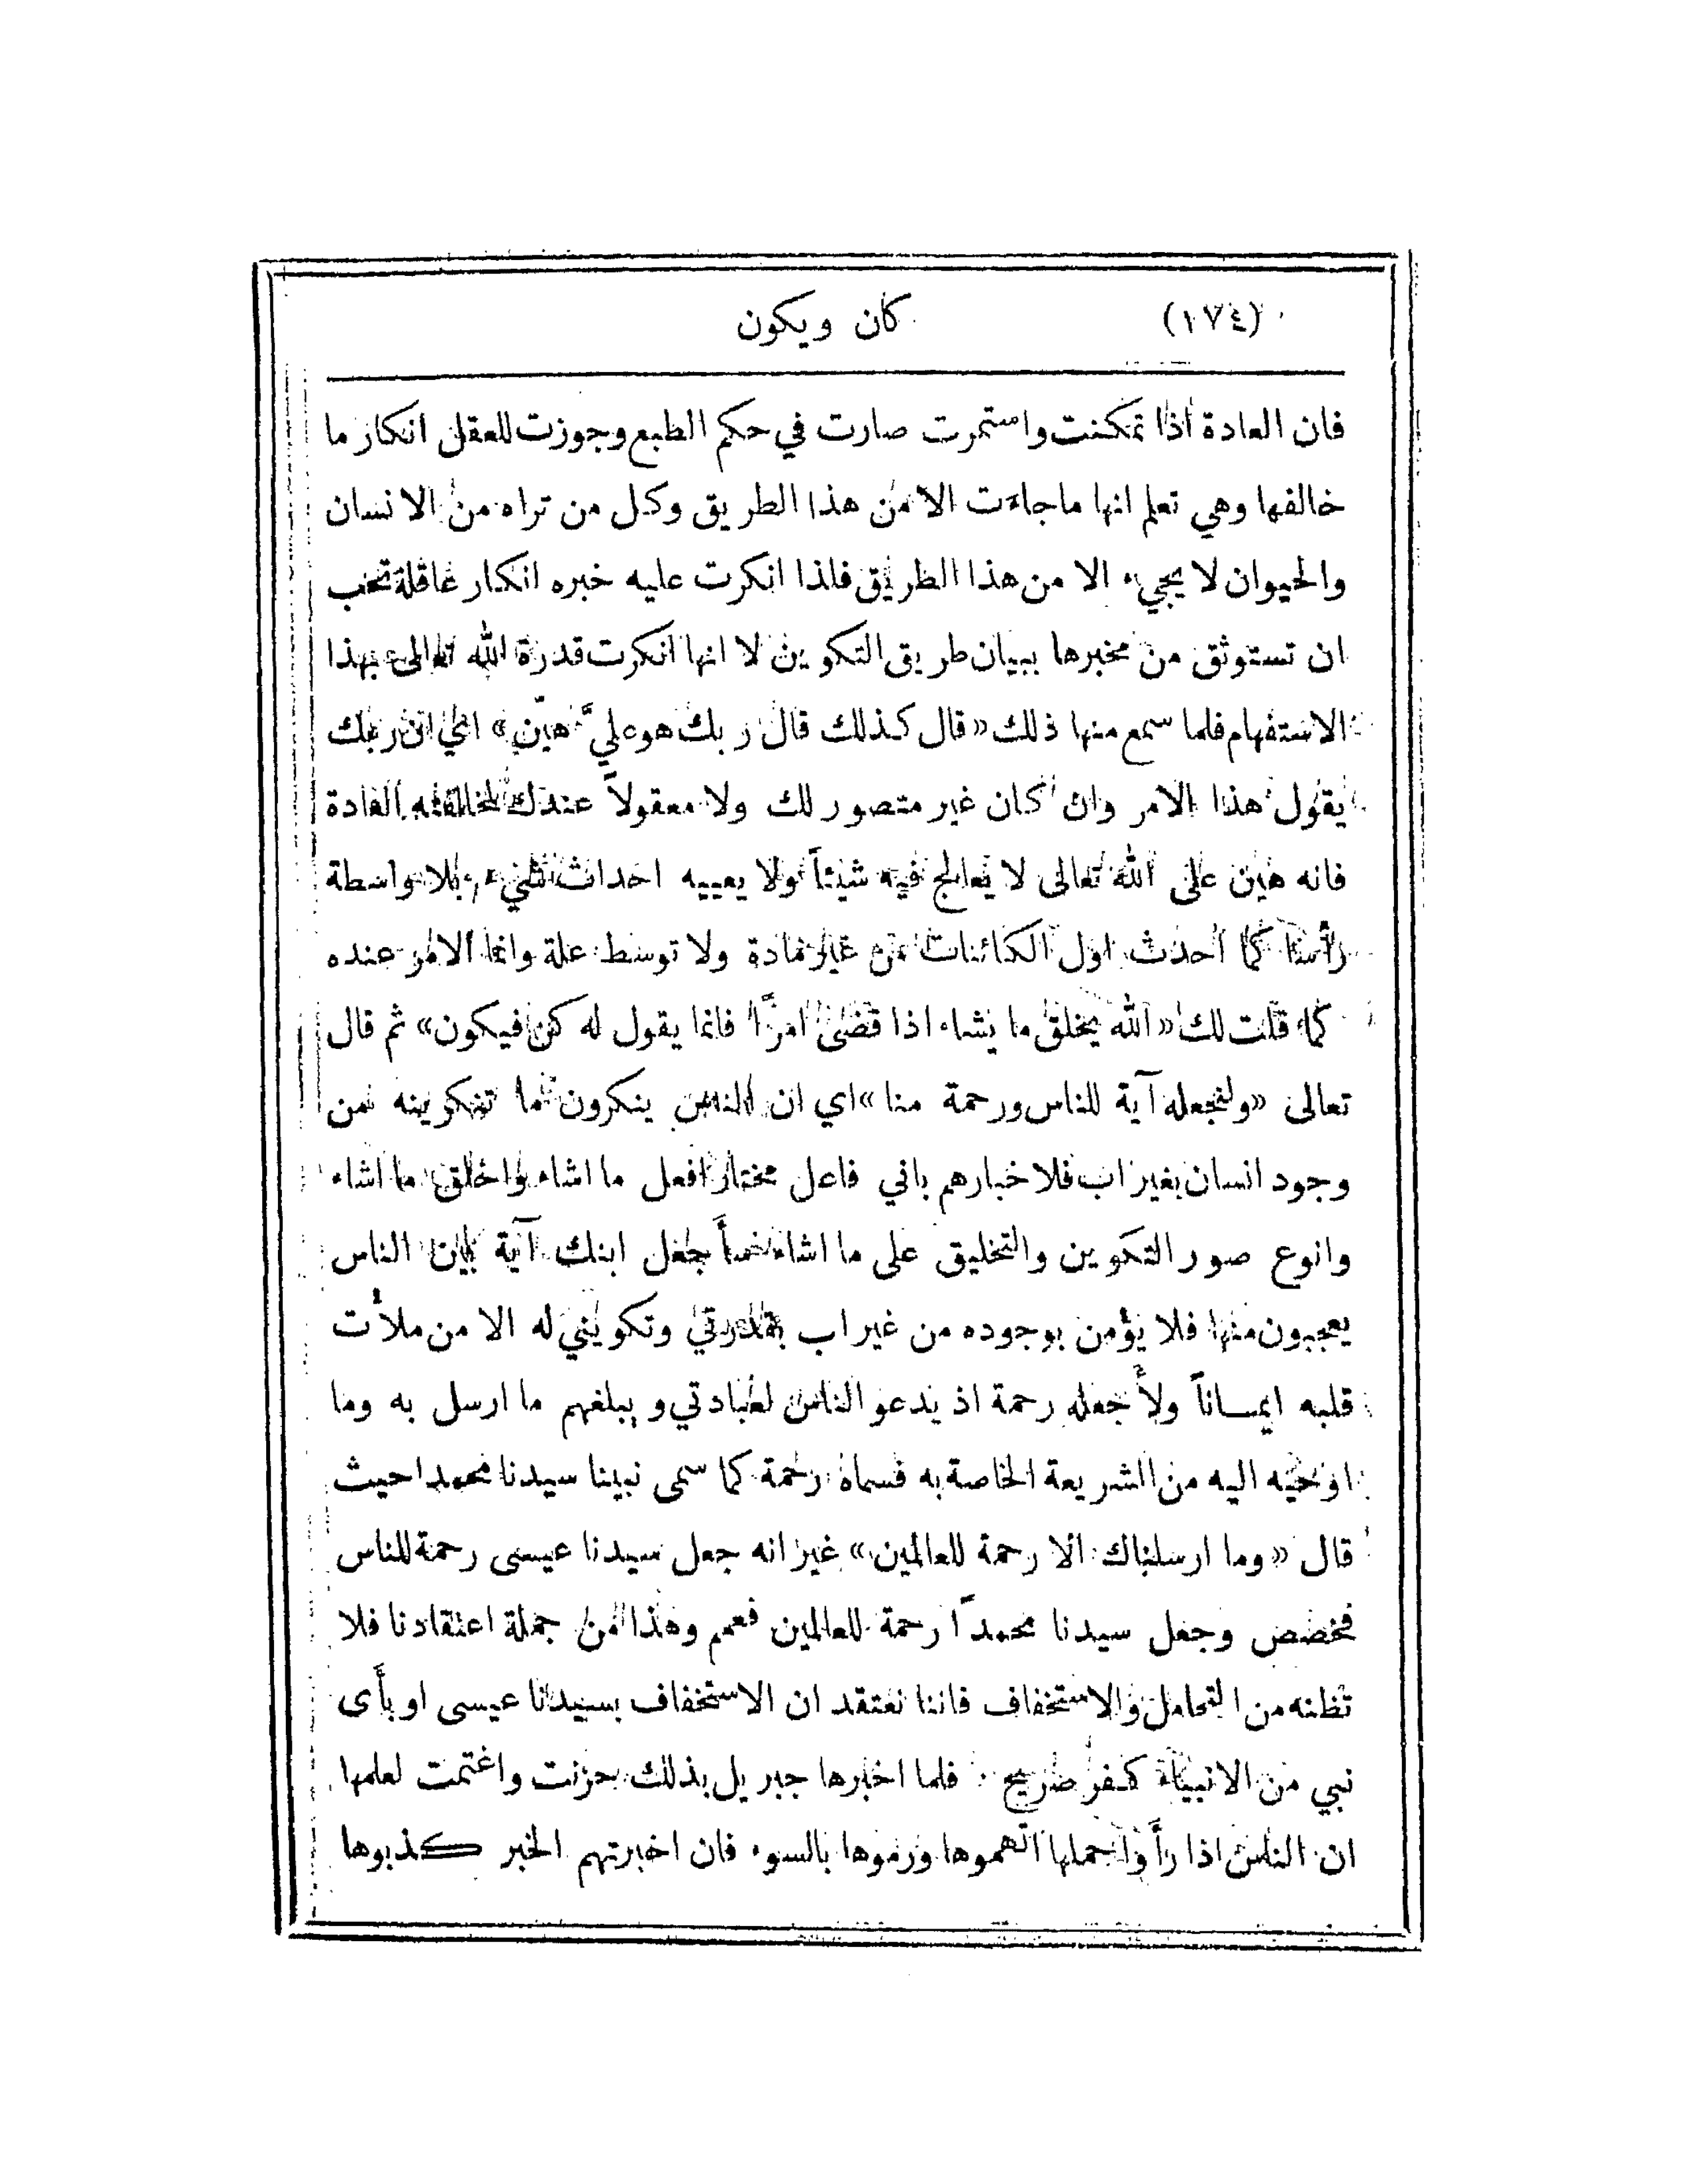 (١٧٤) كان ويكون
فان العادة اذا تمكنت واستمرت صارت في حكم الطبع وجوزت للعقل انكار ما
خالفها وهي تعلم انها ماجاءت الا من هذا الطريق وكل من تراه من الانسان
والحيوان لا يجيء الا من هذا الطريق فلذا انكرت عليه خبره انكار عاقلة تحب
ان تستوثق من مخبرها ببيان طريق التكوين لا انها انكرت قدرة الله تعالى بهذا
الاستفهام فلما سمع منها ذلك «قال كذلك قال ربك هو عليَّ هيّن» اي ان ربك
يقول هذا الامر وان كان غير متصور لك ولا معقولاً عندك لمخالفته العادة
فانه هين على الله تعالى لا يعالج فيه شيئاً ولا يعييه احداث شيء بلا واسطة
رأسا كما احدث اول الكائنات من غير مادة ولا توسط علة وانما الامر عنده
كما قلت لك «الله يخلق ما يشاء اذا قضى امرًا فانما يقول له كن فيكون» ثم قال
تعالى «ولنجعله آية للناس ورحمة منا» اي ان الناس ينكرون ما تنكرينه من
وجود انسان بغير اب فلاخبارهم باني فاعل مختار افعل ما اشاء واخلق ما اشاء
وانوع صور التكوين والتخليق على ما اشاء جعل ابنك آية بين الناس
يعجبون منها فلا يؤمن بوجوده من غير اب بقدرتي وتكويني له الا من ملأت
قلبه ايمـاناً ولأجعله رحمة اذ يدعو الناس لعبادتي ويبلغهم ما ارسل به وما
اوحيه اليه من الشريعة الخاصة به فسماه رحمة كما سمى نبينا سيدنا محمدا حيث
قال «وما ارسلناك الا رحمة للعالمين» غير انه جعل سيدنا عيسى رحمة للناس
فخصص وجعل سيدنا محمدًا رحمة للعالمين فعمم وهذا من جملة اعتقادنا فلا
تظنه من التحامل والاستخفاف فاننا نعتقد ان الاستخفاف بسيدنا عيسى او بأى
نبي من الانبياء كفر صريح · فلما اخبرها جبريل بذلك حزنت واغتمت لعلمها
ان الناس اذا رأوا حملها اتهموها ورموها بالسوء فان اخبرتهم الخبر كذبوها